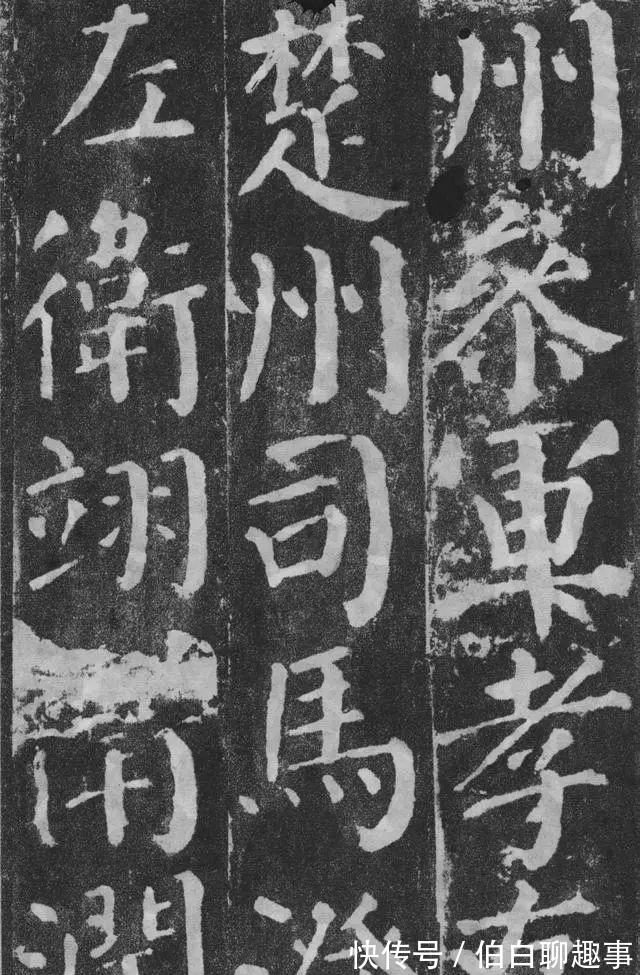 州參軍孝
楚州司馬
左衛翊潤
快传号 / 伯白聊趣事